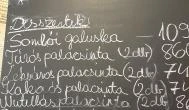 Desszertek:
Somlói galuska — 109
Túrós palacsinta (2db) 86
palacsinta (2db) 74
Kakaós palacsinta (2db) 74
Nutellás palacsinta (2db)